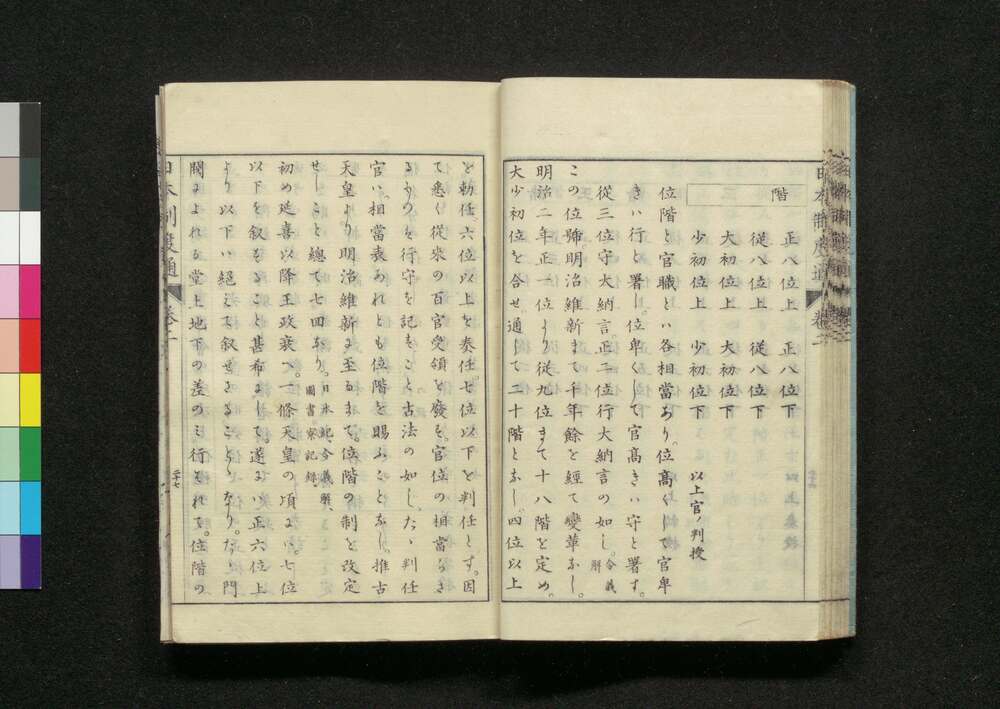 階
正八位上　正八位下
従八位上　従八位下
大初位上　大初位下
少初位上　少初位下　以上官ノ判授
位階と官職とハ各相當あり。位高くして官卑
きハ行と署し。位卑くして官高きハ守と署す。
從三位守大納言正二位行大納言の如し。令義解
この位號。明治維新まて千年餘を經て變革なし。
明治二年正一位より従九位まて十八階を定め。
大少初位を合せ。通して二十階となし。四位以上
を勅任。六位以上を奏任。七位以下を判任とす。因
て悉く從來の百官受領を廢を。官位の相當らさ
るものを行守を記をこと古法の如し。たゝ判任
官ハ。相當表あれとも位階を賜ふことなし。推古
天皇より明治維新に至るまて。位階の制を改定
せしこと總て七回なり。日本紀、令義解、圖書寮記録
初め延喜以降王政衰へ。一條天皇の頃よハ。七位
以下を叙をること甚希にして。遂にハ正六位上
より以下ハ絶えて叙せさることゝなり。たゝ門
閥によれる堂上地下の差のミ行それて。位階の
日本制度通
巻二
二十七